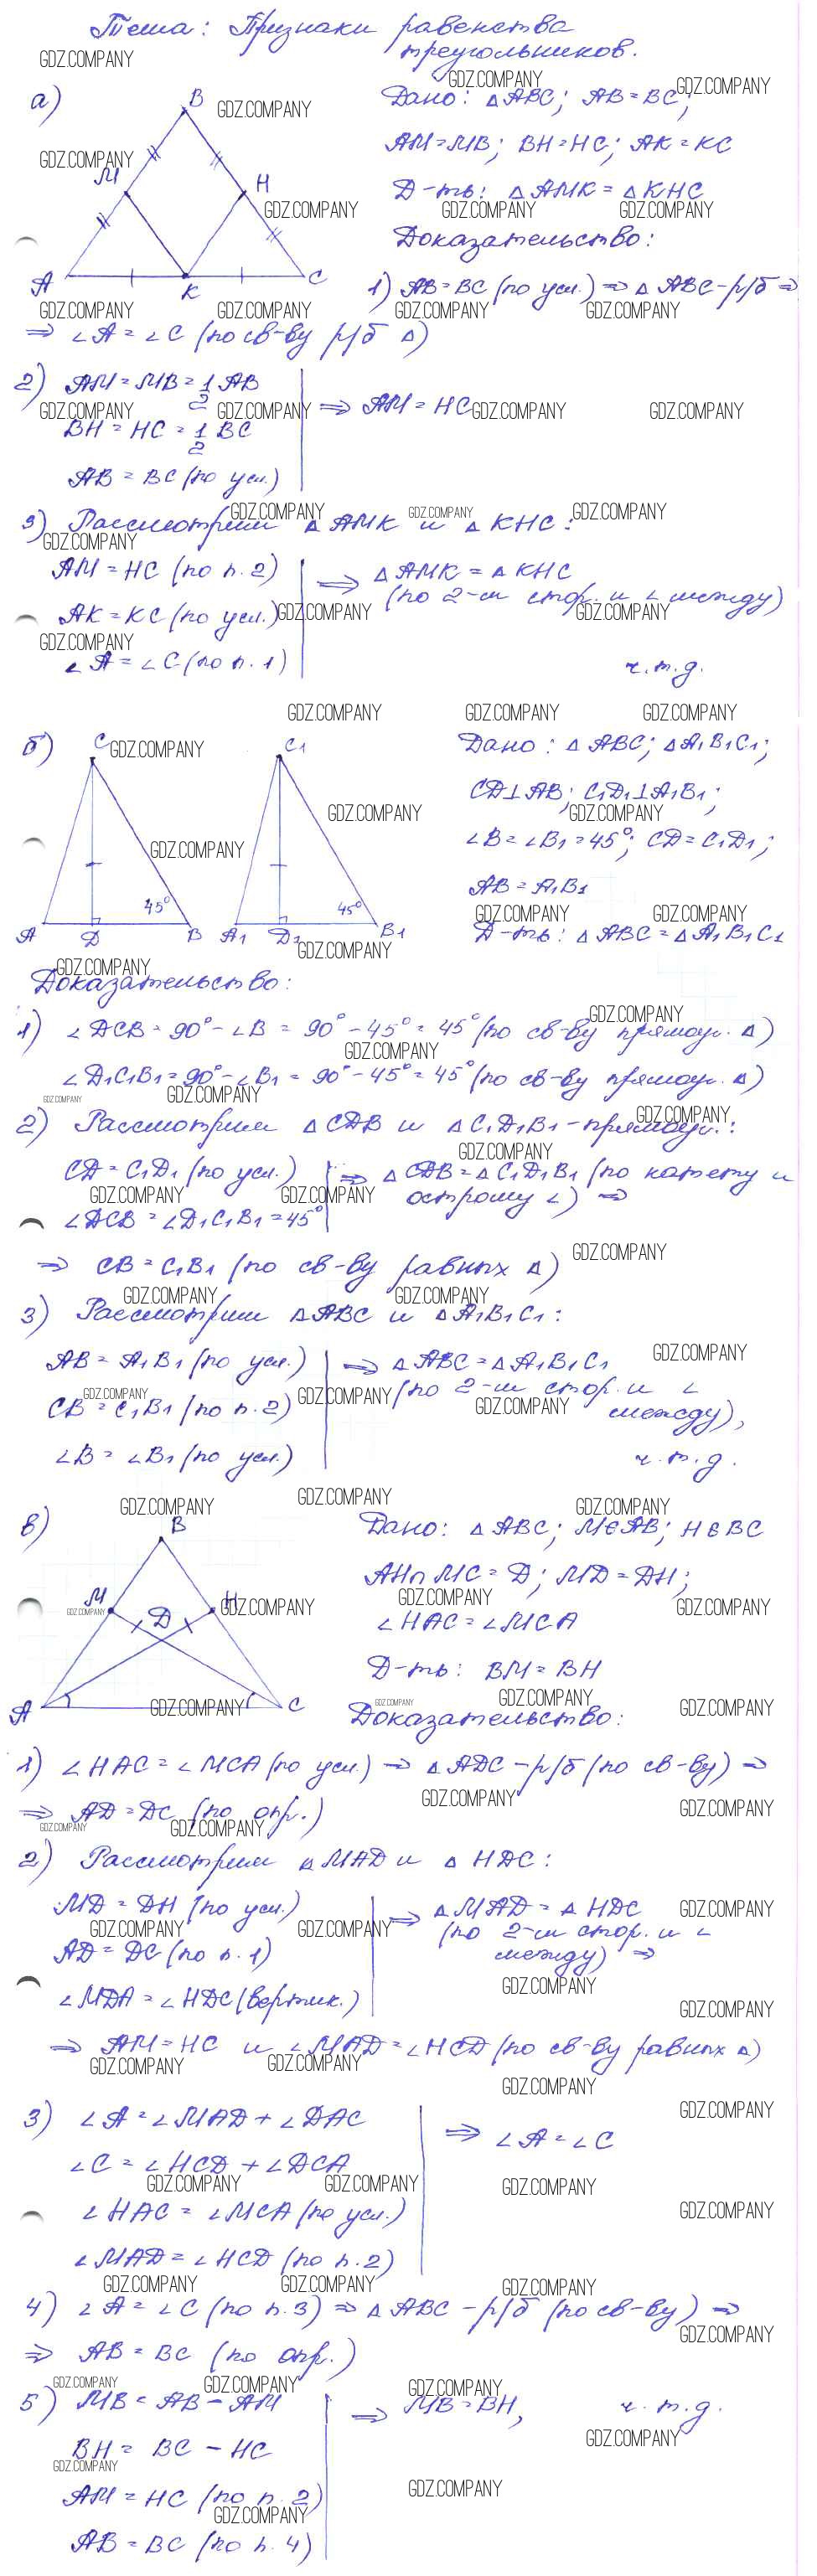 Тема: Признаки равенства
треугольников.
а)
B
M
H
A
K
C
Дано: △ABC; AB=BC;
AM=MB; BH=HC; AK=KC
Д-ть: △AMK=△KHC
Доказательство:
1) AB=BC (по усл.) ⇒ △ABC-р/б ⇒
⇒ ∠A=∠C (по св-ву р/б △)
2) AM=MB=1/2 AB
BH=HC=1/2 BC
AB=BC (по усл.)
⇒ AM=HC
3) Рассмотрим △AMK и △KHC:
AM=HC (по п.2)
AK=KC (по усл.)
∠A=∠C (по п.1)
⇒ △AMK=△KHC
(по 2-м стор. и ∠ между)
ч.т.д.
б)
C
C1
45°
45°
A
D
B
A1
D1
B1
Дано: △ABC; △A1B1C1;
CD⊥AB; C1D1⊥A1B1;
∠B=∠B1=45°; CD=C1D1;
AB=A1B1
Д-ть: △ABC=△A1B1C1
Доказательство:
1) ∠DCB=90°-∠B=90°-45°=45° (по св-ву прямоуг. △)
∠D1C1B1=90°-∠B1=90°-45°=45° (по св-ву прямоуг. △)
2) Рассмотрим △CDB и △C1D1B1-прямоуг.:
CD=C1D1 (по усл.)
∠DCB=∠D1C1B1=45°
⇒ △CDB=△C1D1B1 (по катету и
острому ∠) ⇒
⇒ CB=C1B1 (по св-ву равных △)
3) Рассмотрим △ABC и △A1B1C1:
AB=A1B1 (по усл.)
CB=C1B1 (по п.2)
∠B=∠B1 (по усл.)
⇒ △ABC=△A1B1C1
(по 2-м стор. и ∠
между),
ч.т.д.
в)
B
M
H
D
A
C
Дано: △ABC; M∈AB; H∈BC
AH∩MC=D; MD=DH;
∠HAC=∠MCA
Д-ть: BM=BH
Доказательство:
1) ∠HAC=∠MCA (по усл.) ⇒ △ADC-р/б (по св-ву) ⇒
⇒ AD=DC (по опр.)
2) Рассмотрим △MAD и △HDC:
MD=DH (по усл.)
AD=DC (по п.1)
∠MDA=∠HDC (вертик.)
⇒ △MAD=△HDC
(по 2-м стор. и ∠
между) ⇒
⇒ AM=HC и ∠MAD=∠HCD (по св-ву равных △)
3) ∠A=∠MAD+∠DAC
∠C=∠HCD+∠DCA
∠HAC=∠MCA (по усл.)
∠MAD=∠HCD (по п.2)
⇒ ∠A=∠C
4) ∠A=∠C (по п.3) ⇒ △ABC-р/б (по св-ву) ⇒
⇒ AB=BC (по опр.)
5) MB=AB-AM
BH=BC-HC
AM=HC (по п.2)
AB=BC (по п.4)
⇒ MB=BH,
ч.т.д.
GDZ.COMPANY